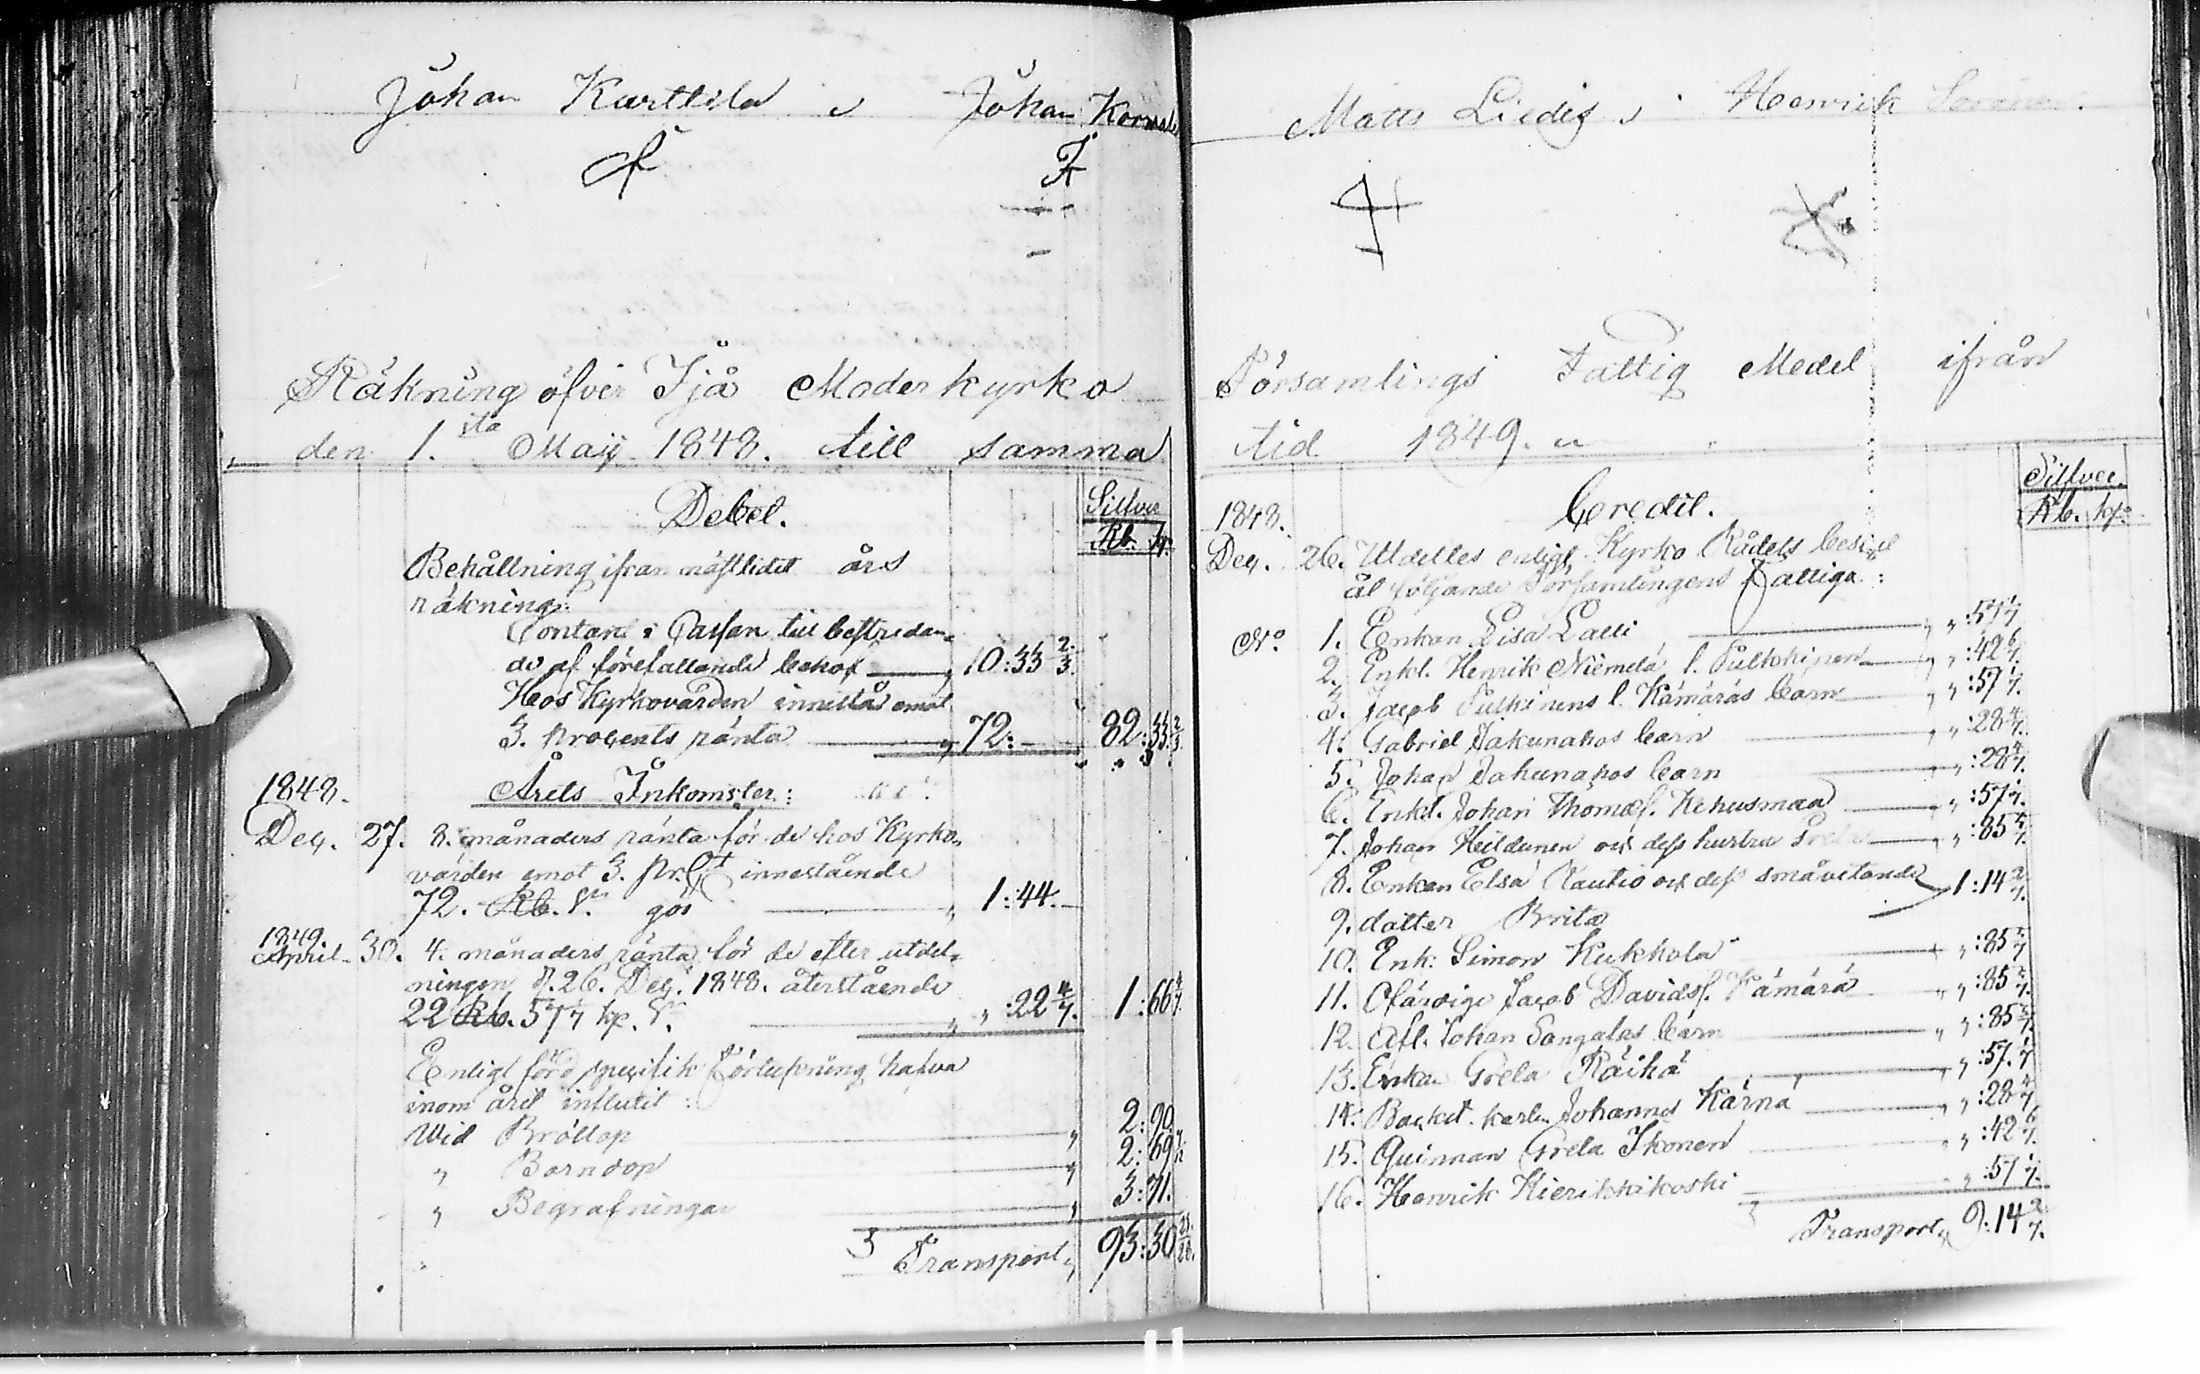 Johan Karttila
Johan
Räkning öfver Ijå Moderkyrko
den 1.sta Maij 1848. till samma
Debet.
Silfver
Rb. kp.
Behållning ifrån nästlidit års
räkning:
Contant i Cassan till bestridan-
de af förefallande behof " 10:33 2/3.
Hos Kyrkovärden innestå emot
3. procents ränta " 72:— 82:33 2/3
1848.
Årets Inkomster:
Dec. 27. 8. månaders ränta för de hos Kyrko-
värden emot 3. Pr.Ct innestående
72. Rb. S.r gör " 1:44.—
1849.
April 30. 4. månaders ränta för de efter utdel-
ningen d. 26. Dec. 1848. återstående
22 Rb. 57 1/7 kp. S.r " " :22 4/7. 1:66 4/7
Enligt förd specifik förteckning hafva
inom året influtit:
Wid Bröllop " 2:90.
" Barndop " 2:69 1/12
" Begrafningar " 3:71.
Transport " 93:30
Matts Liedes
Henrik
Församlings Fattig Medel ifrån
tid 1849.
1848.
Credit.
Silfver.
Rb. kp.
Dec. 26. Utdeltes enligt Kyrko Rådets beslut
åt följande Församlingens Fattiga:
N:o 1. Enkan Lisa Lalli " " :57 1/7
2. Enkl. Henrik Niemelä l. Pulkkinen " " :42 6/7.
3. Jacob Pulkinens l. Kämäräs barn " " :57 1/7.
4. Gabriel Jakunahos barn " " :28 4/7.
5. Johan Jakunahos barn " " :28 4/7.
6. Enkl. Johan Thomæs. Kehusmaa " " :57 1/7.
7. Johan Heildunen och dess hustru Greta " " :85 5/7.
8. Enkan Elsa Rautio och dess småvetande 1:14 2/7.
9. dotter Brita
10. Enk: Simon Kukkola " " :85 5/7
11. Ofärdige Jacob Davids. Kämärä " " :85 5/7.
12. Afl. Johan Sangalas barn " " :85 5/7.
13. Enkan Greta Räihä " " :57 1/7
14. Backst. karlen Johannes Kärnä " " :28 4/7
15. Quinnan Greta Ikonen " " :42 6/7.
16. Henrik Kierikkikoski " " :57 1/7.
Transport " 9:14 2/7.